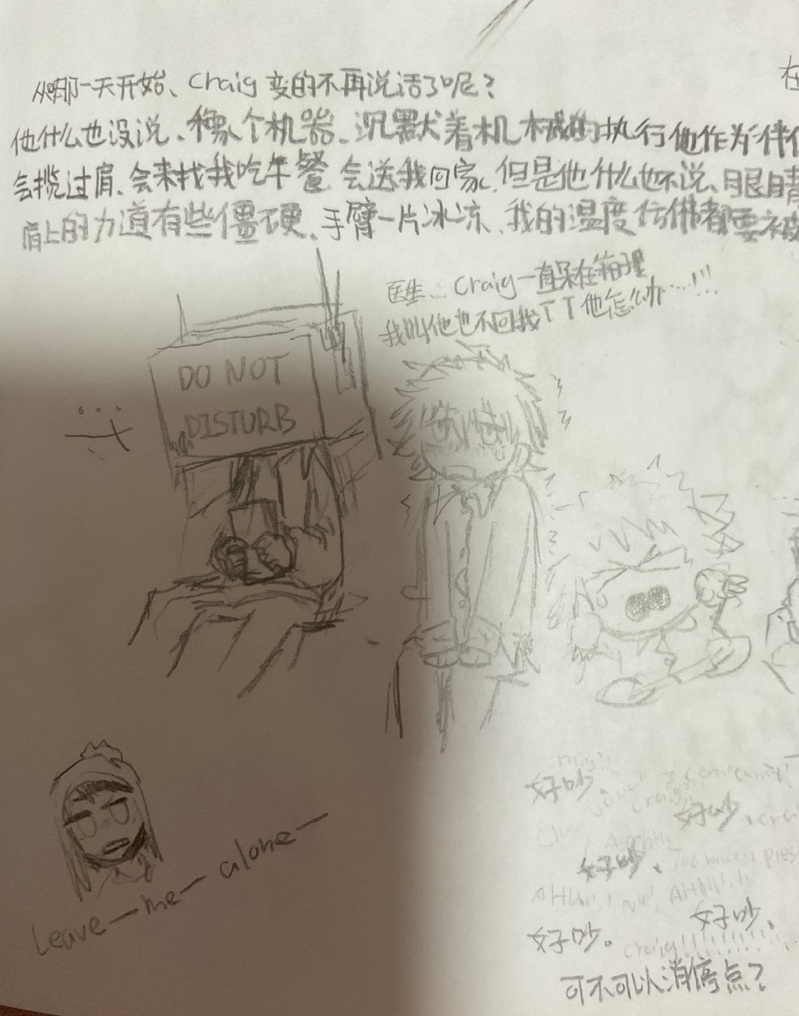 从哪一天开始、Craig 变的不再说话了呢？
他什么也没说、像个机器、沉默着机械的执行他作为伴
会揽过肩、会来找我吃午餐、会送我回家、但是他什么也不说、眼睛
肩上的力道有些僵硬、手臂一片冰冻、我的温度仿佛都要被
在
医生… Craig一直呆在箱里
我叫他也不回我TT他怎么办…!!!
DO NOT
DISTURB
Leave—me—alone—
好吵、
好吵、
好吵、
好吵、
好吵。
craig!!!!!!!!!!!
可不可以消停点？